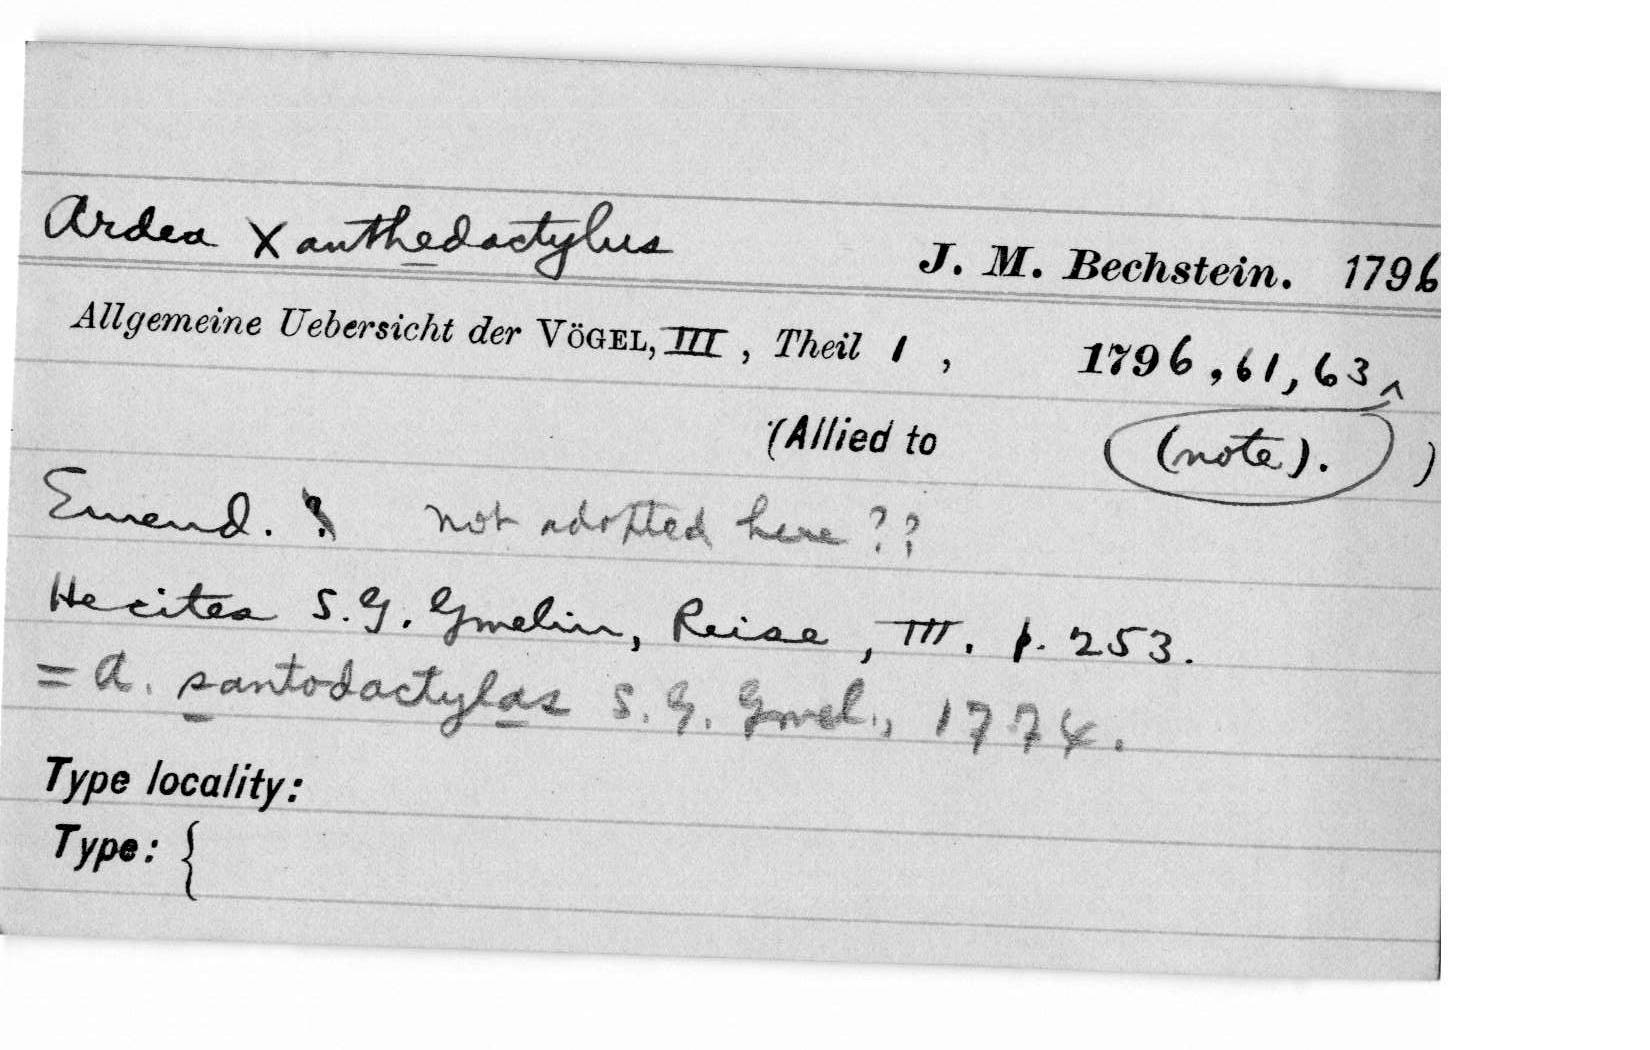 Ardea Xanthedactylus
J. M. Bechstein. 1796
Allgemeine Uebersicht der VÖGEL, III, Theil 1, 1796, 61, 63 ^
(Allied to (note). )
Emend. ? not adopted here ??
He cites S. G. Gmelin, Reise, III. p. 253.
= A. santodactylas S. G. Gmel., 1774.
Type locality:
Type: {